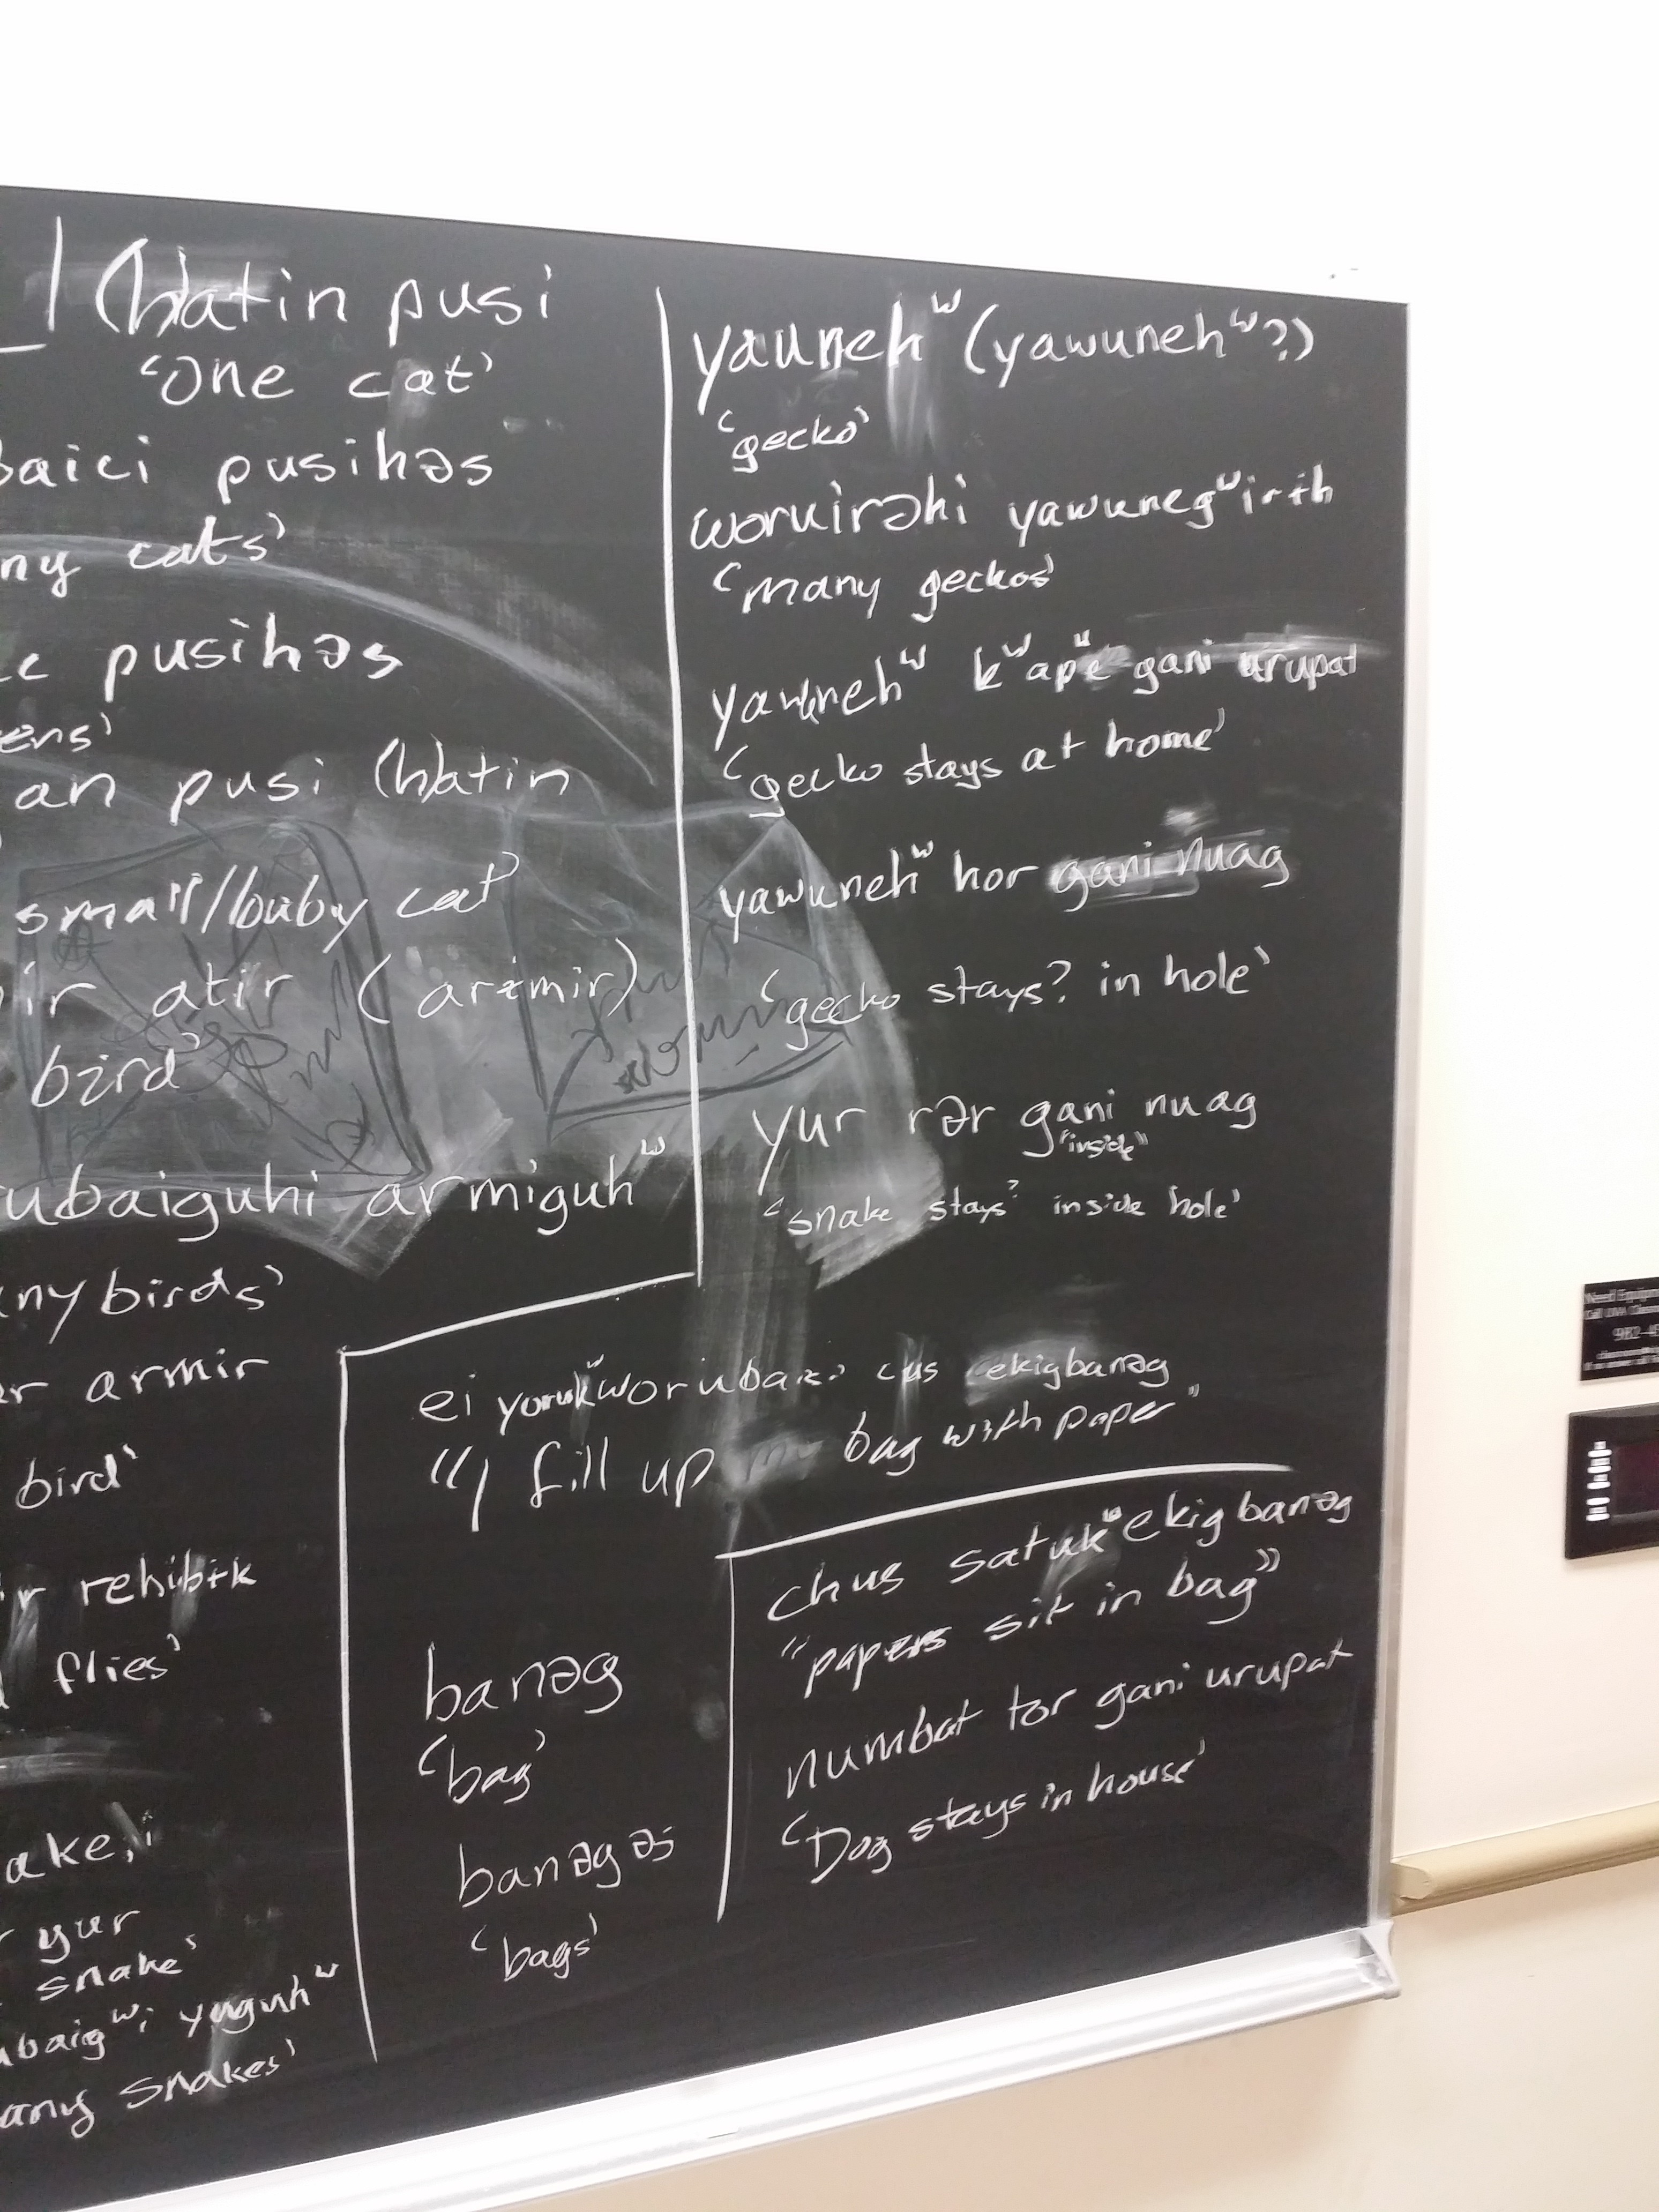 (h)atin pusi
'one cat'
baici pusihəs
ny cats'
c pusihəs
ens'
an pusi (h)atin
small/baby cat'
ir atir (arɨmir)
bird'
ubaiguhi armiguhʷ
ny birds'
er armir
bird'
r rehibɨk
flies'
ake,i
r yur
snake'
ubaigʷi yuguhʷ
any snakes'
yaunehʷ (yawunehʷ?)
'gecko'
woruirəhi yawunegʷirɨh
'many geckos'
yawunehʷ kʷape gani urupat
'gecko stays at home'
yawunehʷ hor gani nuag
'gecko stays? in hole'
yur rər gani nuag
"inside"
'snake stays? inside hole'
ei cus ekigbanəg
"I fill up my bag with paper"
banəg
'bag'
banəgəs
'bags'
chus satukʷ ekigbanəg
"papers sit in bag"
numbat tor gani urupat
'Dog stays in house'
Need Equipm
982-4